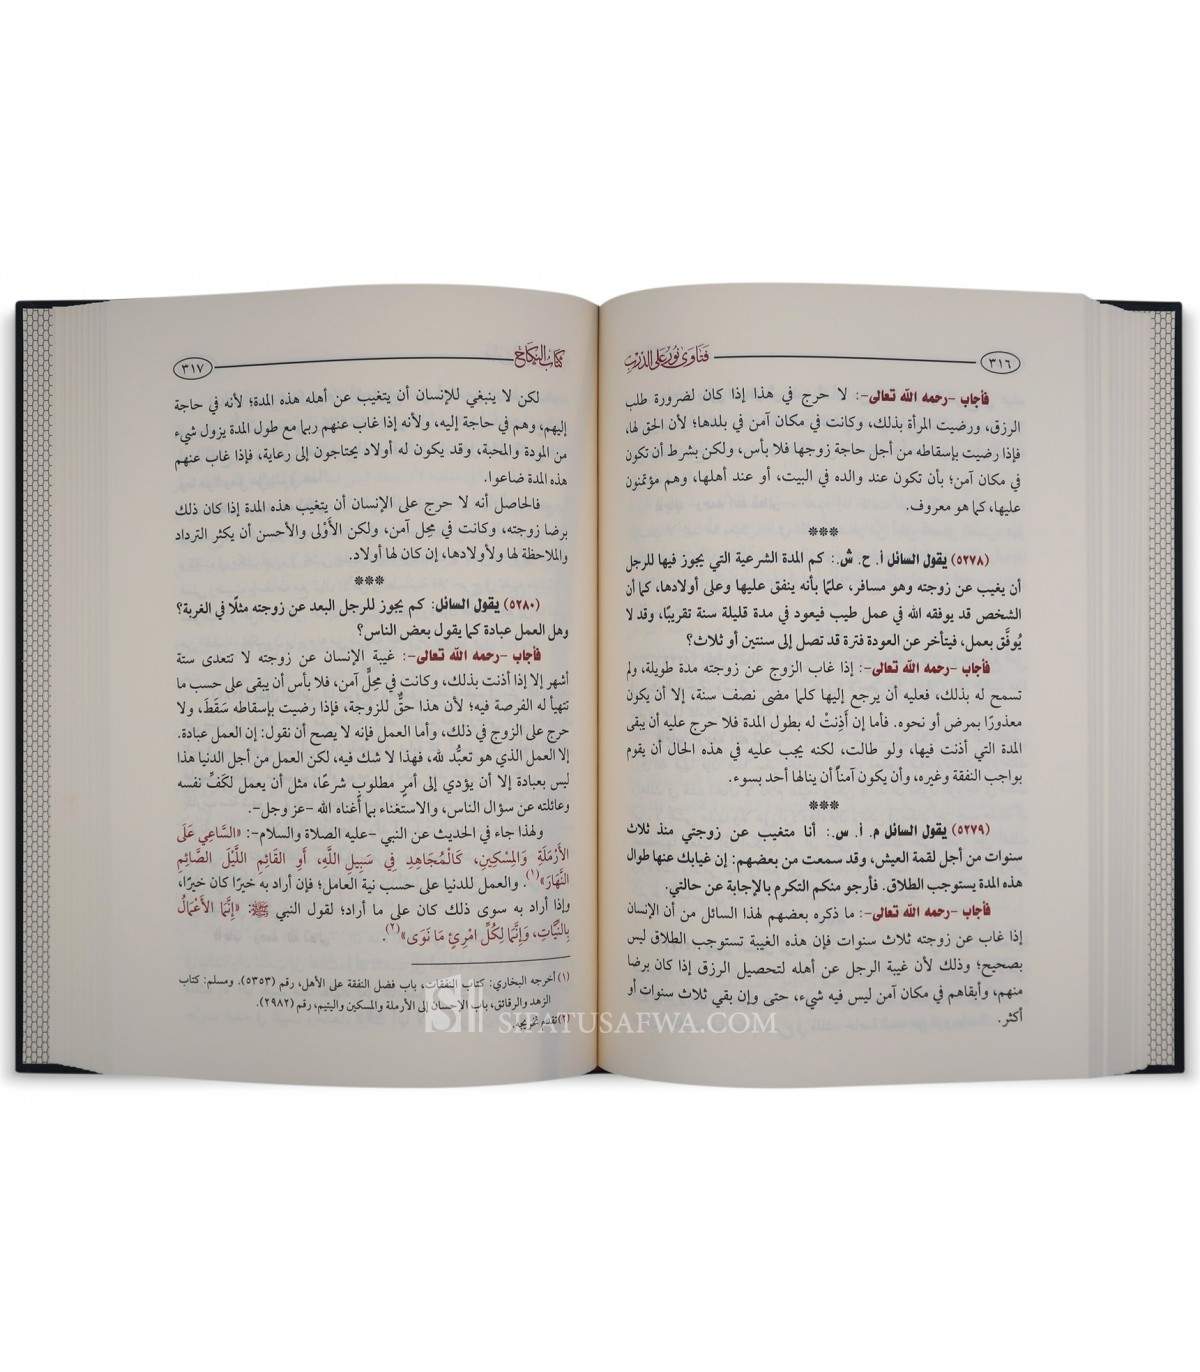 ٣١٦ فتاوى نور على الدرب
فأجاب -رحمه الله تعالى-: لا حرج في هذا إذا كان لضرورة طلب
الرزق، ورضيت المرأة بذلك، وكانت في مكان آمن في بلدها؛ لأن الحق لها،
فإذا رضيت بإسقاطه من أجل حاجة زوجها فلا بأس، ولكن بشرط أن تكون
في مكان آمن؛ بأن تكون عند والده في البيت، أو عند أهلها، وهم مؤتمنون
عليها، كما هو معروف.
***
(٥٢٧٨) يقول السائل أ. ح. ش.: كم المدة الشرعية التي يجوز فيها للرجل
أن يغيب عن زوجته وهو مسافر، علمًا بأنه ينفق عليها وعلى أولادها، كما أن
الشخص قد يوفقه الله في عمل طيب فيعود في مدة قليلة سنة تقريبًا، وقد لا
يُوفَّق بعمل، فيتأخر عن العودة فترة قد تصل إلى سنتين أو ثلاث؟
فأجاب -رحمه الله تعالى-: إذا غاب الزوج عن زوجته مدة طويلة، ولم
تسمح له بذلك، فعليه أن يرجع إليها كلما مضى نصف سنة، إلا أن يكون
معذورًا بمرض أو نحوه. فأما إن أَذِنتْ له بطول المدة فلا حرج عليه أن يبقى
المدة التي أذنت فيها، ولو طالت، لكنه يجب عليه في هذه الحال أن يقوم
بواجب النفقة وغيره، وأن يكون آمنًا أن ينالها أحد بسوء.
***
(٥٢٧٩) يقول السائل م. أ. س.: أنا متغيب عن زوجتي منذ ثلاث
سنوات من أجل لقمة العيش، وقد سمعت من بعضهم: إن غيابك عنها طوال
هذه المدة يستوجب الطلاق. فأرجو منكم التكرم بالإجابة عن حالتي.
فأجاب -رحمه الله تعالى-: ما ذكره بعضهم لهذا السائل من أن الإنسان
إذا غاب عن زوجته ثلاث سنوات فإن هذه الغيبة تستوجب الطلاق ليس
بصحيح؛ وذلك لأن غيبة الرجل عن أهله لتحصيل الرزق إذا كان برضا
منهم، وأبقاهم في مكان آمن ليس فيه شيء، حتى وإن بقي ثلاث سنوات أو
أكثر.
كتاب النكاح ٣١٧
لكن لا ينبغي للإنسان أن يتغيب عن أهله هذه المدة؛ لأنه في حاجة
إليهم، وهم في حاجة إليه، ولأنه إذا غاب عنهم ربما مع طول المدة يزول شيء
من المودة والمحبة، وقد يكون له أولاد يحتاجون إلى رعاية، فإذا غاب عنهم
هذه المدة ضاعوا.
فالحاصل أنه لا حرج على الإنسان أن يتغيب هذه المدة إذا كان ذلك
برضا زوجته، وكانت في محل آمن، ولكن الأَوْلى والأحسن أن يكثر الترداد
والملاحظة لها ولأولادها، إن كان لها أولاد.
***
(٥٢٨٠) يقول السائل: كم يجوز للرجل البعد عن زوجته مثلًا في الغربة؟
وهل العمل عبادة كما يقول بعض الناس؟
فأجاب -رحمه الله تعالى-: غيبة الإنسان عن زوجته لا تتعدى ستة
أشهر إلا إذا أذنت بذلك، وكانت في محِلٍّ آمن، فلا بأس أن يبقى على حسب ما
تتهيأ له الفرصة فيه؛ لأن هذا حقٌّ للزوجة، فإذا رضيت بإسقاطه سَقَطَ، ولا
حرج على الزوج في ذلك، وأما العمل فإنه لا يصح أن نقول: إن العمل عبادة.
إلا العمل الذي هو تعبُّد لله، فهذا لا شك فيه، لكن العمل من أجل الدنيا هذا
ليس بعبادة إلا أن يؤدي إلى أمرٍ مطلوبٍ شرعًا، مثل أن يعمل لكَفِّ نفسه
وعائلته عن سؤال الناس، والاستغناء بما أغناه الله -عز وجل-.
ولهذا جاء في الحديث عن النبي -عليه الصلاة والسلام-: «السَّاعِي عَلَى
الأَرْمَلَةِ وَالمِسْكِينِ، كَالْمُجَاهِدِ فِي سَبِيلِ اللَّهِ، أَوِ القَائِمِ اللَّيْلَ الصَّائِمِ
النَّهَارَ»(١). والعمل للدنيا على حسب نية العامل؛ فإن أراد به خيرًا كان خيرًا،
وإذا أراد به سوى ذلك كان على ما أراد؛ لقول النبي ﷺ: «إِنَّمَا الأَعْمَالُ
بِالنِّيَّاتِ، وَإِنَّمَا لِكُلِّ امْرِئٍ مَا نَوَى»(٢).
(١) أخرجه البخاري: كتاب النفقات، باب فضل النفقة على الأهل، رقم (٥٣٥٣). ومسلم: كتاب
الزهد والرقائق، باب الإحسان إلى الأرملة والمسكين واليتيم، رقم (٢٩٨٢).
(٢) تقدم تخريجه.
SIFATUSAFWA.COM